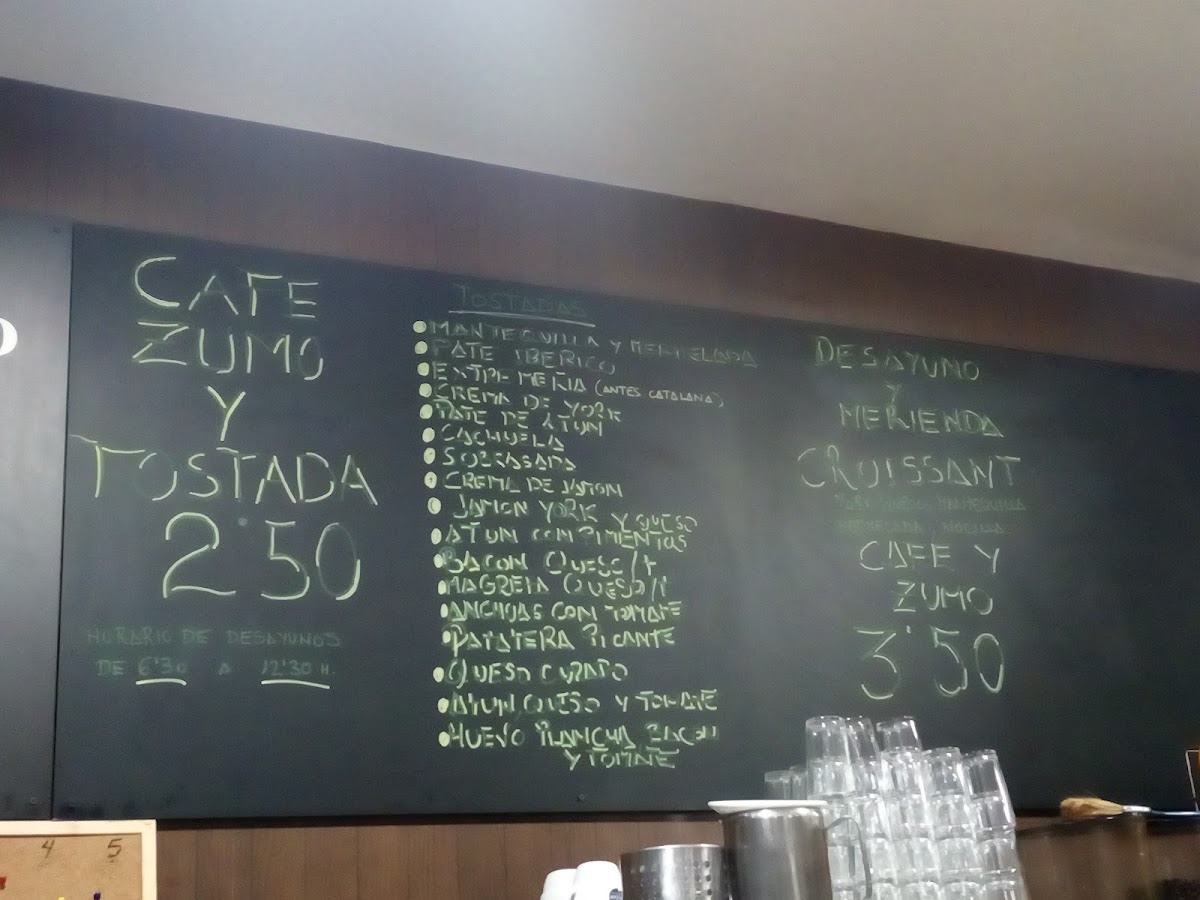 CAFE
ZUMO
Y
TOSTADA
2'50
HORARIO DE DESAYUNOS
DE 6'30 A 12'30 H.
TOSTADAS
MANTEQUILLA Y MERMELADA
PATE IBERICO
EXTREMEÑA (ANTES CATALANA)
CREMA DE YORK
PATE DE ATUN
CACHUELA
SOBRASADA
CREMA DE JAMON
JAMON YORK Y QUESO
ATUN CON PIMIENTOS
BACON QUESO/T
MAGRETA QUESO/T
ANCHOAS CON TOMATE
PATATERA PICANTE
QUESO CURADO
ATUN QUESO Y TOMATE
HUEVO PLANCHA BACON
Y TOMATE
DESAYUNO
Y
MERIENDA
CROISSANT
MANTEQUILLA
MERMELADA, NOCILLA
CAFE Y
ZUMO
3'50
4 5